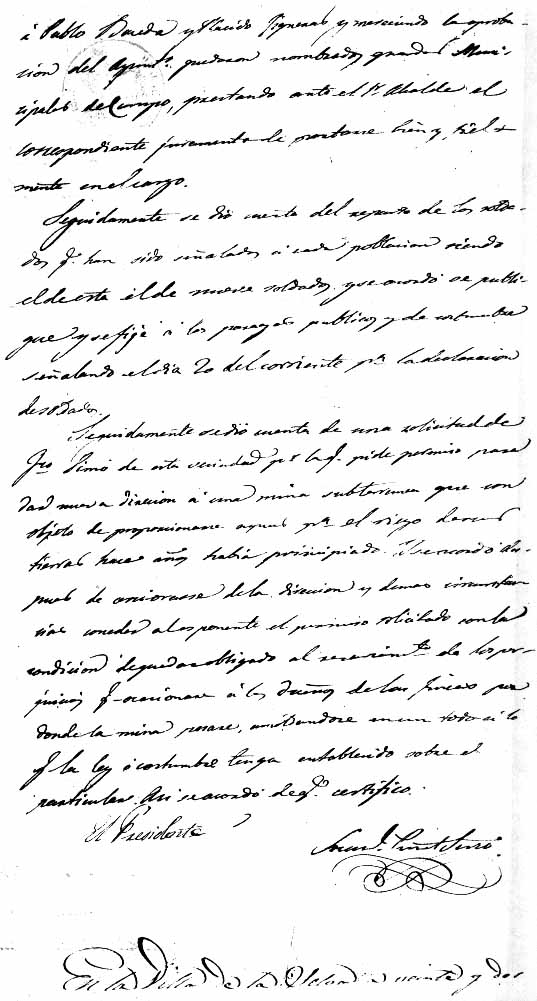 á Pablo Boada y Plácido Figueras y mereciendo la aproba-
cion del Ayuntº. quedaron nombrados guardas Muni-
cipales de Campo, prestando ante el Sr. Alcalde el
correspondiente juramento de portarse bien y fiel-
mente en el cargo.
Seguidamente se dió cuenta del reparto de los solda-
dos qe. han sido señalados á cada poblacion siendo
el de esta el de nueve soldados, y se acordó se publi-
que y se fije á los parages publicos y de costumbre
señalando el dia 20 del corriente pª. la declaracion
de soldados.
Seguidamente se dió cuenta de una solicitud de
Fco. Simó de esta vecindad pr. la qe. pide permiso para
dar nueva direccion á una mina subterranea que con
objeto de proporcionarse aguas pª. el riego de sus
tierras hace años habia principiado. Y se acordó des-
pues de enterarse de la direccion y demas circunstan-
cias conceder al esponente el permiso solicitado con la
condicion de quedar obligado al resarcimto. de los per-
juicios qe. ocasionase á los dueños de las fincas por
donde la mina pasare, en un todo á lo
qe. la ley ó costumbre tenga establecido sobre el
particular. Asi se acordó de qe. certifico.
El Presidente
En la Villa de la Selva á veinte y dos